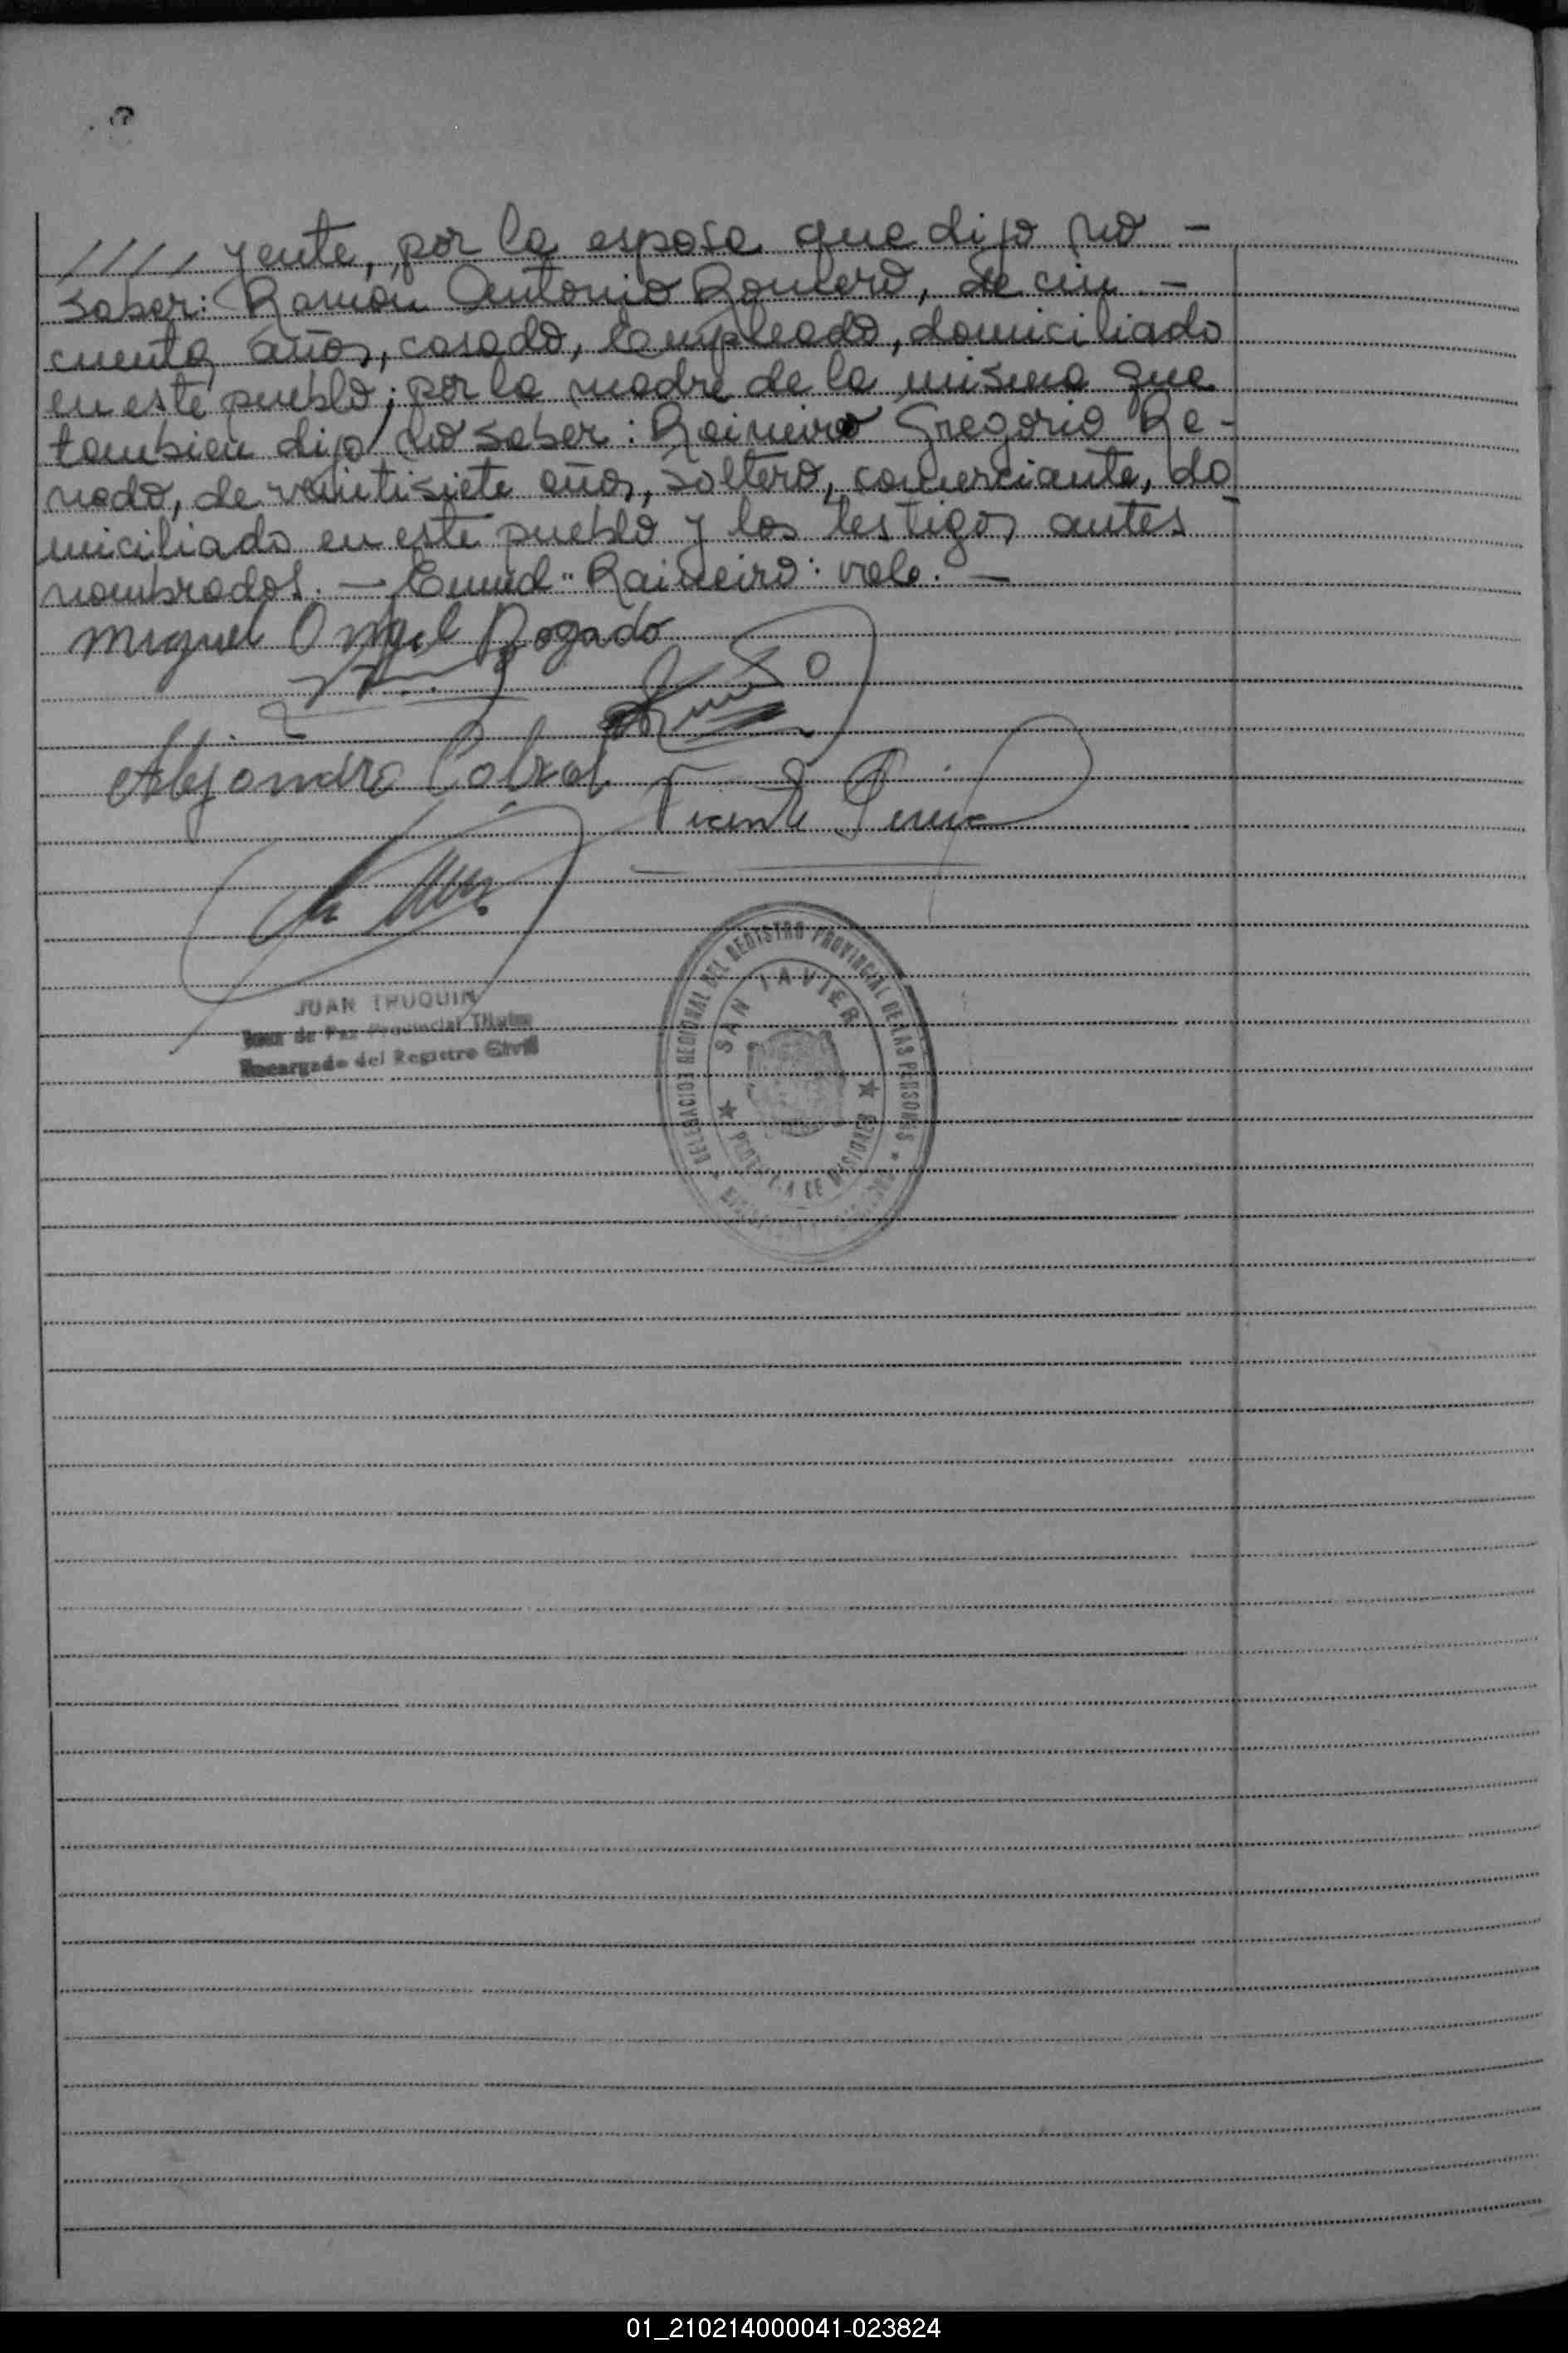 //// yente, por la esposa que dijo no -
saber: Ramon Antonio Romero, de cin -
cuenta años, casado, Empleado, domiciliado
en este pueblo; por la madre de la misma que
tambien dijo no saber: Raineiro Gregorio Re-
nedo, de veintisiete años, soltero, comerciante, do
miciliado en este pueblo y los testigos antes
nombrados. - Enmd: Raineiro: vale. -
Miguel Angel Bogado
Alejandro Cabral
Vicente
JUAN TRUQUIN
Juez de Paz Provincial Titular
Encargado del Registro Civil
DELEGACION REGIONAL DEL REGISTRO PROVINCIAL DE LAS PERSONAS
SAN JAVIER